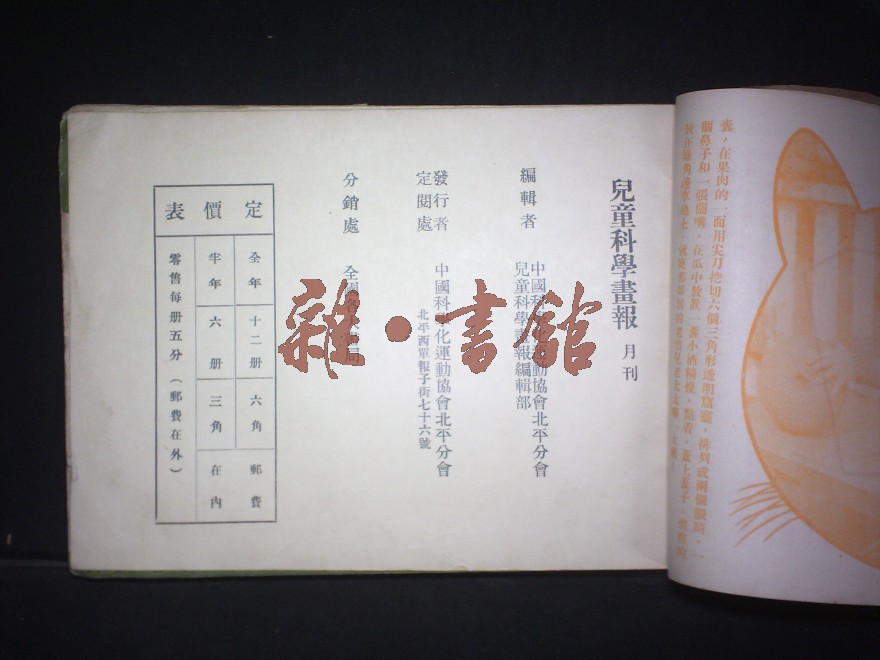 囊，在果肉的一面用尖刀挖切六個三角形透明窟窿，排列成兩個眼睛，一
個鼻子和一張闊嘴，在瓜中放一盞小酒精燈，點着，蓋上蓋子，悄悄的
兒童科學畫報 月刊
編輯者
中國科學化運動協會北平分會
兒童科學畫報編輯部
發行者
定閱處
中國科學化運動協會北平分會
北平西單報子街七十六號
分銷處 全國各大書局
定價表
全年 十二册 六角 郵費
半年 六册 三角 在內
零售每册五分（郵費在外）
雜·書館